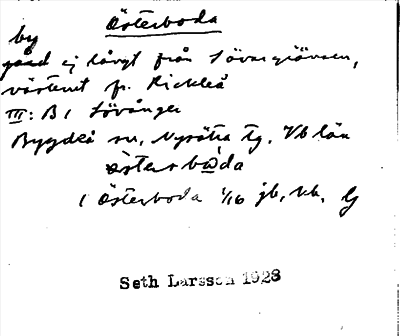 Österboda
by
gård ej långt från Sövargränsen,
västerut fr. Rickleå
III: B 1 Lövånger
Bygdeå sn, Nysätra tg, Vb län
österboda
( Österboda 1/16 jb, kb, lj
Seth Larsson 1928